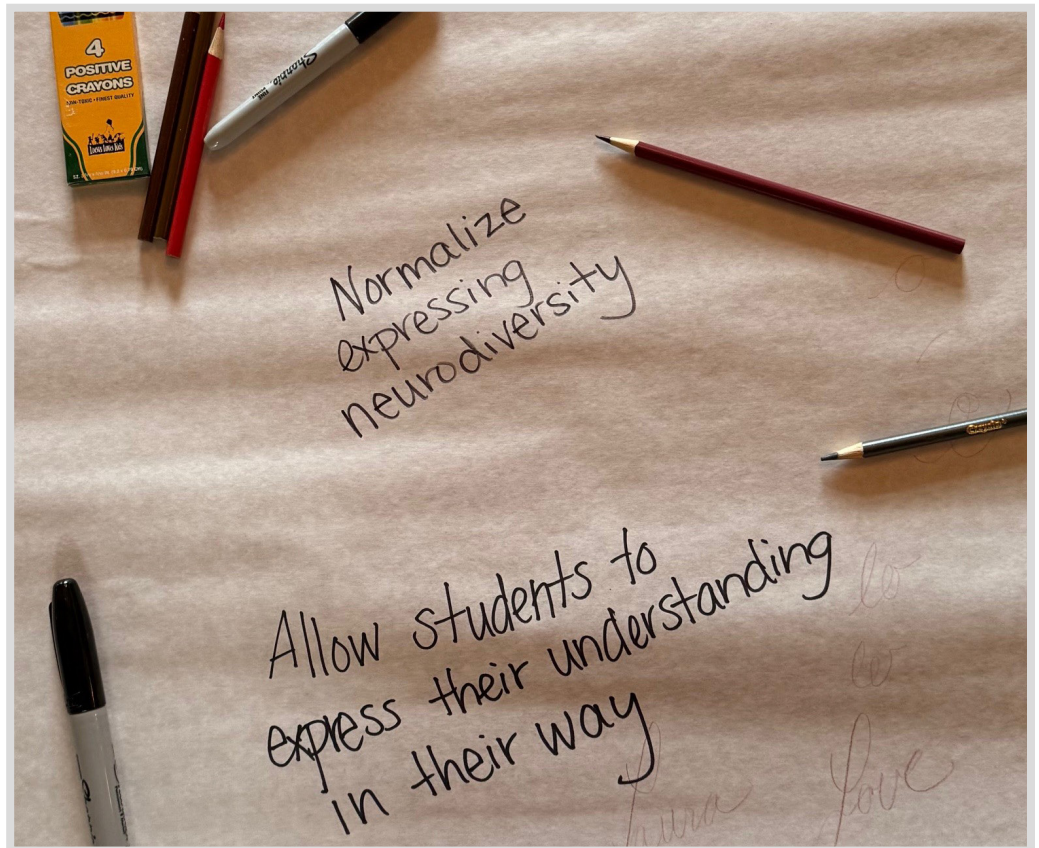 4
POSITIVE
CRAYONS
NON-TOXIC • FINEST QUALITY
Sharpie
Normalize
expressing
neurodiversity
Crayola
Allow students to
express their understanding
in their way
Laura Love